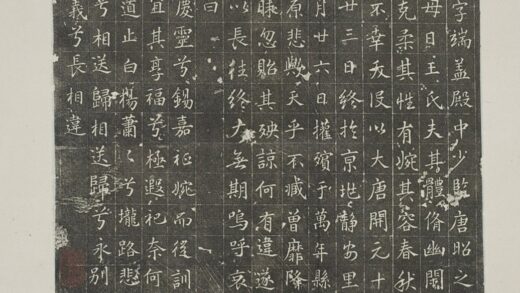 字端盖殿中少監唐昭之
毋日王氏夫其體脩幽閑
克柔其性有婉其容春秋
不幸夭歿以大唐開元十
廿三日終扵京地静安里
月廿六日攉殯于萬年縣
原悲興天乎不臧曾靡降
忽貽其殃諒何有違遂
以長徃終古無期嗚呼哀
曰
慶靈兮錫嘉祉婉而後訓
宜其享福兮極遐祀奈何
道止白楊蕭〻兮壠路悲
兮相送歸相送歸兮永別
義兮長相違